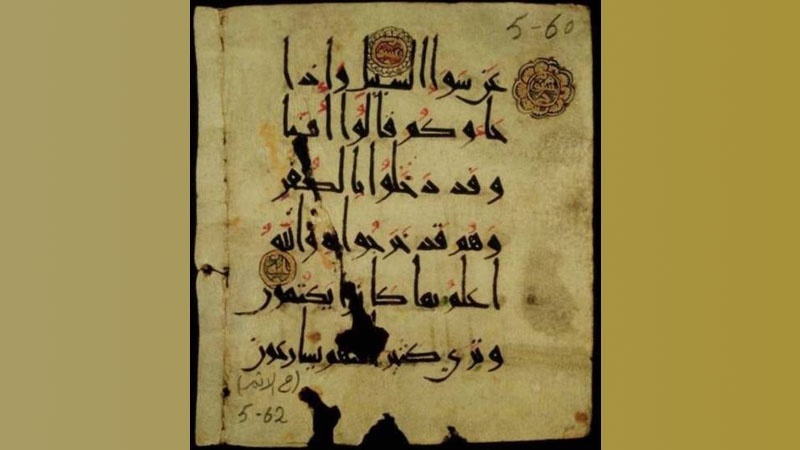 5-60
عَن سَوا السبيل وَاذا
جاوكُم قالُوا اٰمنا
وقد دَخَلُوا بالكُفر
وَهُم قد خَرَجُوا به وَاللّٰهُ
اعلم بما كانوا يكتمون
وترى كثيرا منهم يسارعون
(في الاثم)
5-62